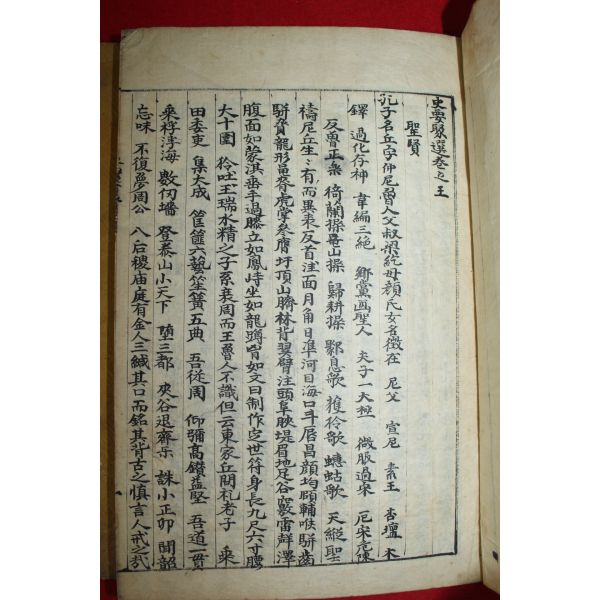 史要聚選卷之五
聖賢
孔子名丘字仲尼魯人父叔梁紇母顔氏女名徵在 尼父 宣尼 素王 杏壇 木
鐸 過化存神 韋編三絕 鄉黨画聖人 夫子一太極 微服過宋 厄宋危陳
反魯正樂 猗蘭操龜山操 歸耕操 鄹息歌 獲獜歌 蟪蛄歌 天縱聖
禱尼丘生生有而異衷反首注面月角日準河目海口斗唇昌顔均頥輔喉騈齒
騈脅龍形龜脊虎掌參膺圩頂山臍林背翼臂注頭阜脥堤眉地足谷竅雷聲澤
腹面如蒙淇垂手過膝立如鳳峙坐如龍蹲胷如文曰制作定世符身長九尺六寸腰
大十圍 獜吐玉瑞水精之子系衰周而王魯人不識但云東家丘問礼老子 乘
田委吏 集大成 筐篚六藝笙簧五典 吾從周 仰彌高鑽益堅 吾道一貫
乘桴浮海 數仞墻 登泰山小天下 墮三都 夾谷退齊兵 誅小正卯 聞韶
忘味 不復夢周公 入后稷庙庭有金人三緘其口而銘其背古之慎言人戒之哉